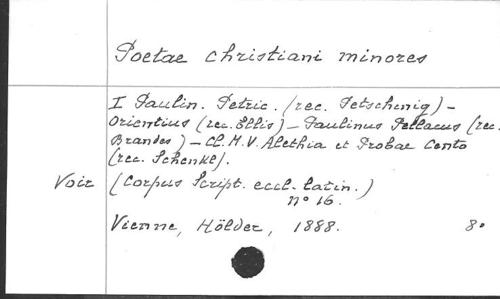 Poetae christiani minores
I Paulin. Petric. (rec. Petschenig) –
Orientius (rec. Ellis) – Paulinus Pellaeus (rec.
Brandes) – Cl. M. V. Alethia et Probae Cento
(rec. Schenkl).
Voir (Corpus Script. eccl. latin.)
n° 16.
Vienne, Hölder, 1888. 8°